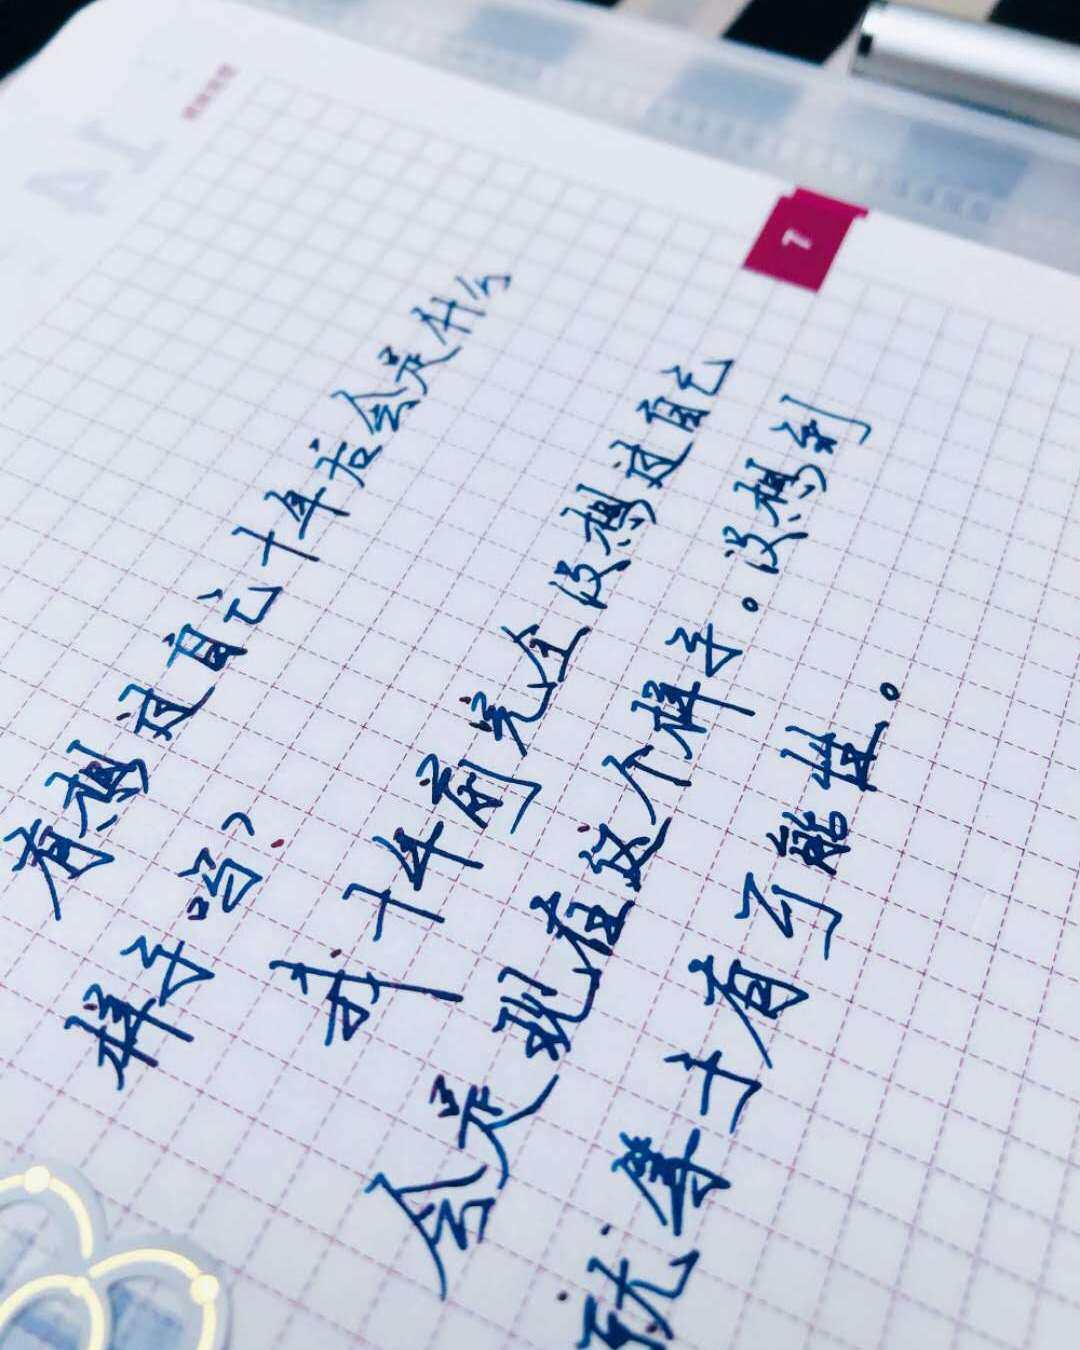 有想过自己十年后会是什么
样子吗?
我十年前完全没想过自己
会是现在这个样子。没想到
就等于有可能性。
7